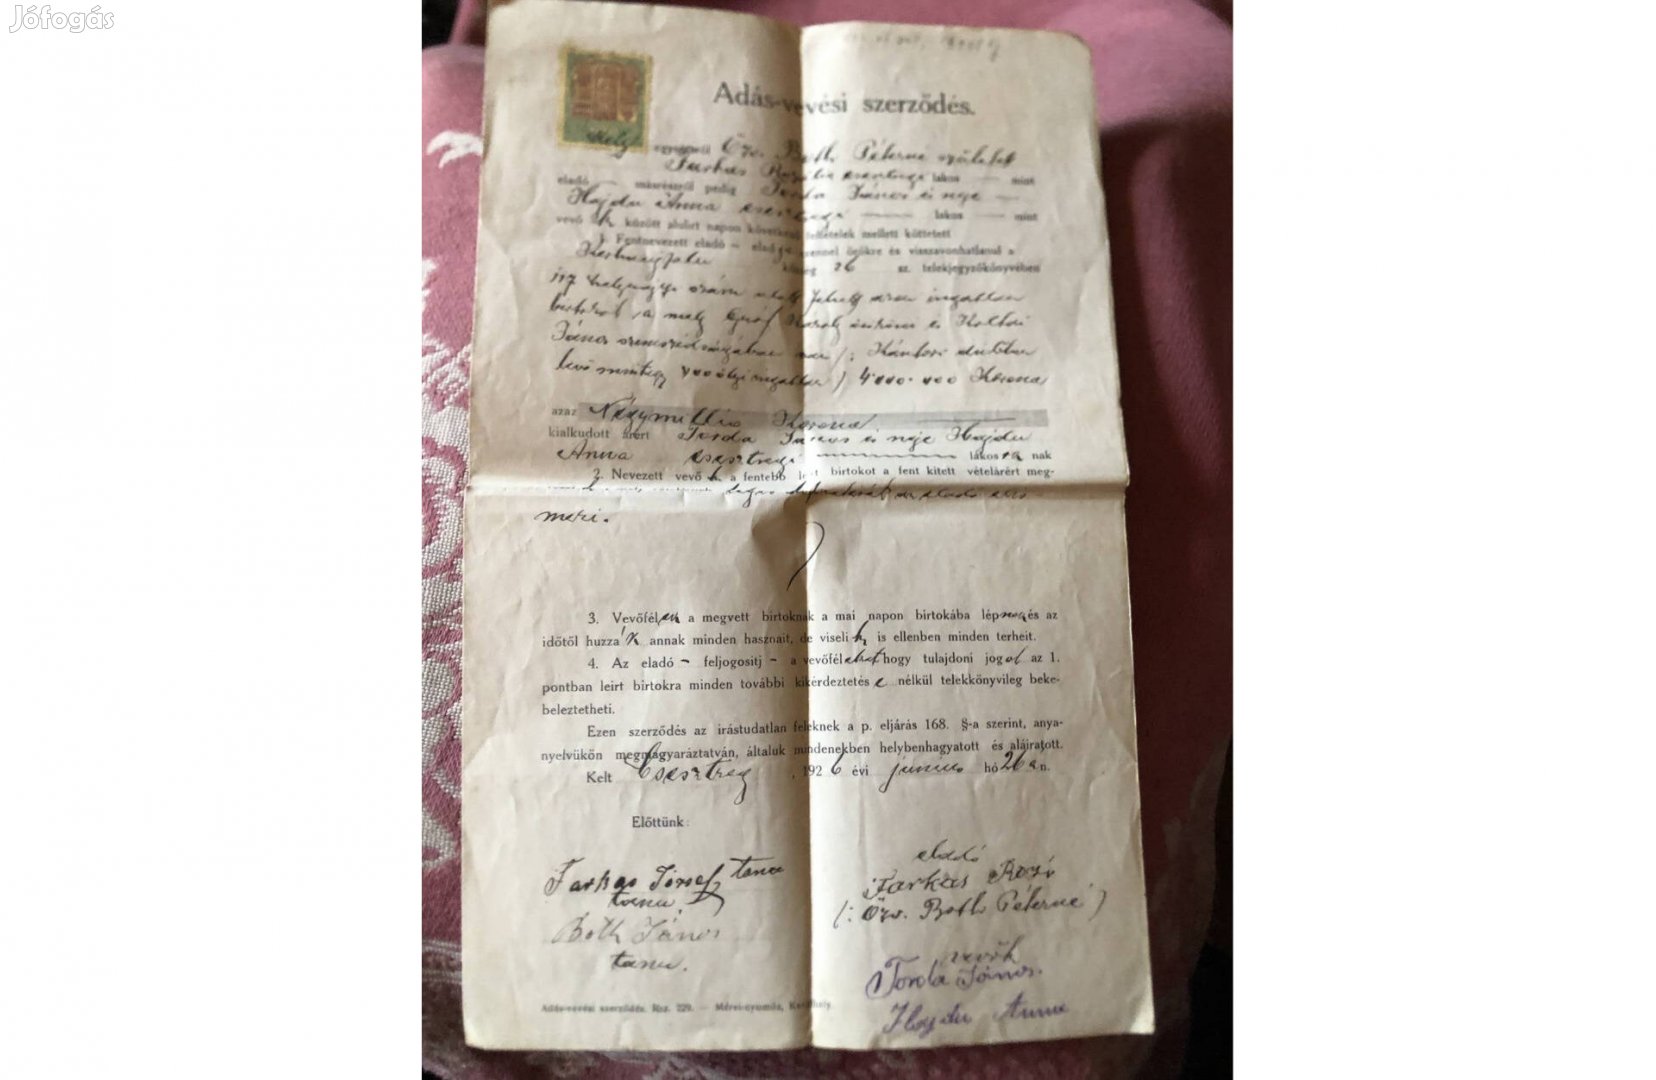 Jófogás
Adás-vevési szerződés.
mely egyrészről Özv. Both Péterné született
Farkas Rozália csesztregi lakos — mint
eladó másrészről pedig Torda János és neje —
Hajdu Anna csesztregi — lakos — mint
vevők között alulirt napon következő feltételek mellett köttetett
1. Fentnevezett eladó – eladja ezennel örökre és visszavonhatlanul a
község 26 sz. telekjegyzőkönyvében
117 helyrajzi szám alatt ingatlan
birtokát, a mely Gróf Károly és Koltai
János szomszédságában van (: Kántori
levő mintegy ingatlan) 4.000.000 Korona
azaz Négymillió Korona
kialkudott árért Torda János és neje Hajdu
Anna csesztregi lakósoknak
2. Nevezett vevők a fentebb leirt birtokot a fent kitett vételárért meg-
az eladó elis
meri.
3. Vevőfélek a megvett birtoknak a mai napon birtokába lépnek és az
időtől huzzák annak minden hasznait, de viselik is ellenben minden terheit.
4. Az eladó – feljogositj – a vevőfeleket hogy tulajdoni jogot az 1.
pontban leirt birtokra minden további kikérdeztetése nélkül telekkönyvileg beke-
beleztetheti.
Ezen szerződés az irástudatlan feleknek a p. eljárás 168. §-a szerint, anya-
nyelvükön megmagyaráztatván, általuk mindenekben helybenhagyatott és aláiratott.
Kelt Csesztreg, 1926 évi junius hó 26 án.
Előttünk:
eladó
Farkas József tanu
Farkas Rozi
tanu
(: Özv. Both Péterné)
Both János
tanu.
vevők
Torda János.
Hajdu Anna
Adás-vevési szerződés. Rsz. 229. — Mérei-nyomda, Keszthely.